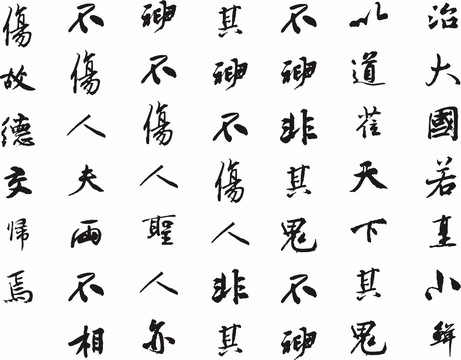 治大國若烹小鮮
以道莅天下其鬼
不神非其鬼不神
其神不傷人非其
神不傷人聖人亦
不傷人夫兩不相
傷故德交歸焉